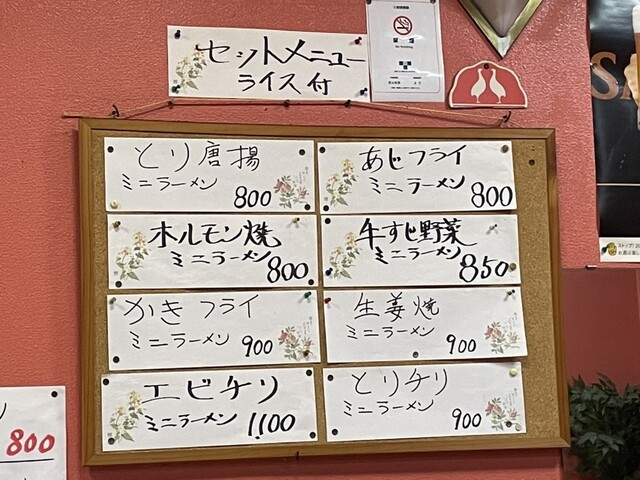 セットメニュー
ライス付
禁煙
No Smoking
とり唐揚
ミニラーメン 800
あじフライ
ミニラーメン 800
ホルモン焼
ミニラーメン 800
牛すじ野菜
ミニラーメン 850
かきフライ
ミニラーメン 900
生姜焼
ミニラーメン 900
エビチリ
ミニラーメン 1,100
とりチリ
ミニラーメン 900
800
SA
ストップ!20